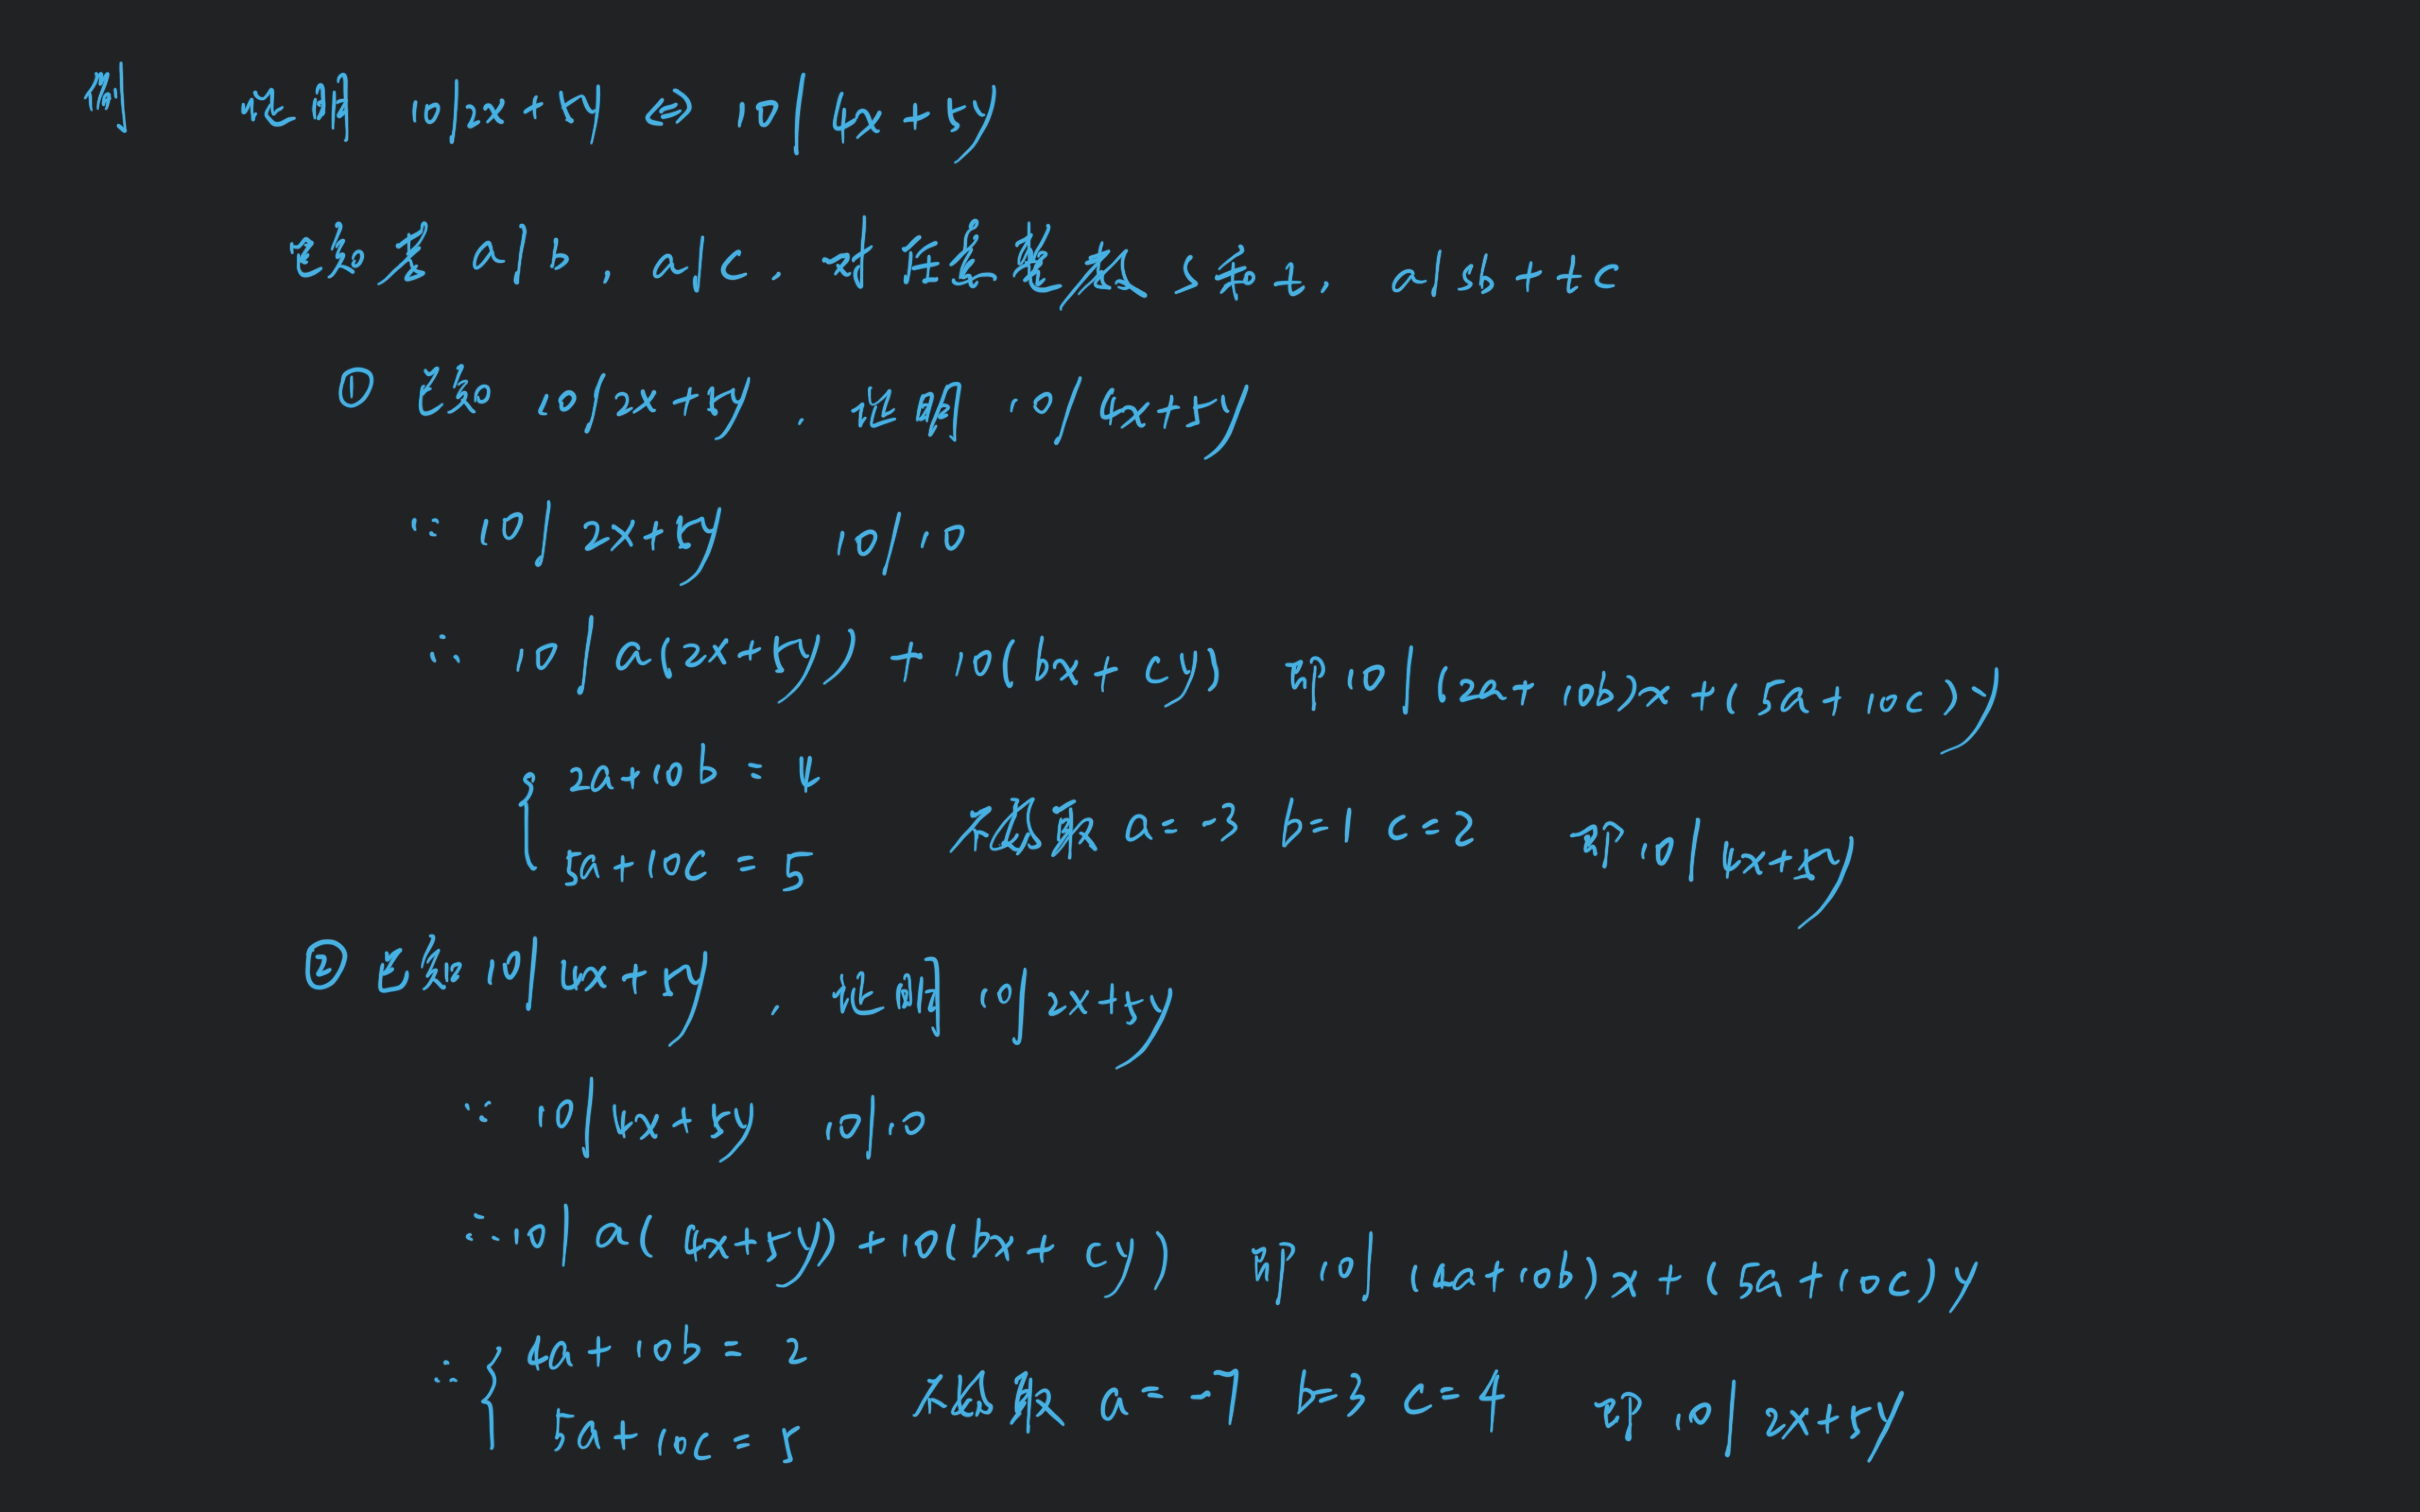 例 证明 10|2x+5y ⇔ 10|4x+5y
已知若 a|b, a|c, 对任意整数 s 和 t, a|sb+tc
① 已知 10|2x+5y, 证明 10|4x+5y
∵ 10|2x+5y 10|10
∴ 10|a(2x+5y)+10(bx+cy) 即 10|(2a+10b)x+(5a+10c)y
{ 2a+10b=4
5a+10c=5 不妨取 a=-3 b=1 c=2 即 10|4x+5y
② 已知 10|4x+5y, 证明 10|2x+5y
∵ 10|4x+5y 10|10
∴ 10|a(4x+5y)+10(bx+cy) 即 10|(4a+10b)x+(5a+10c)y
∵ { 4a+10b=2
5a+10c=5 不妨取 a=-7 b=3 c=4 即 10|2x+5y